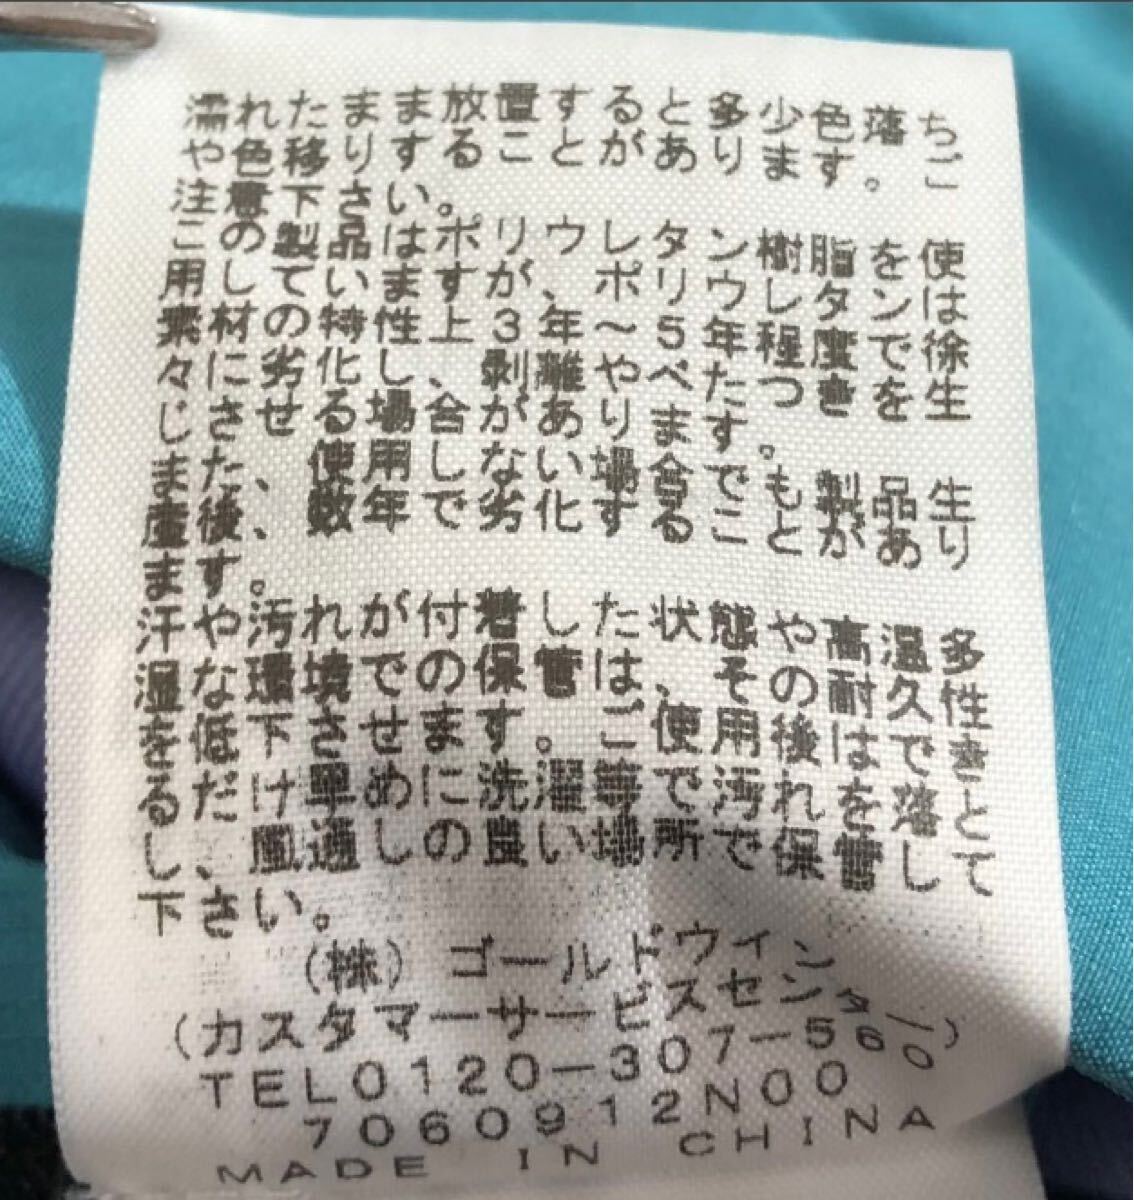 濡れたまま放置すると多少色落ち
や色移りする ことがあります。ご
注意下さい。
この製品はポリウレタン樹脂を使
用しています。ポリウレタンは
素材の特性上、3～5年程度で徐
々に劣化し、剥離やべたつきを生
じさせる場合があります。
また、使用しない場合でも製品生
産後、数年で劣化することがあり
ます。
汗や汚れが付着した状態や高温多
湿な環境での保管は、その耐久性
を低下させます。ご使用後はできる
だけ早めに洗濯等で汚れを落と
し、風通しの良い場所で保管して
下さい。
(株)ゴールドウイン
(カスタマーサービスセンター)
TEL0120-307-560
7060912N00
MADE IN CHINA